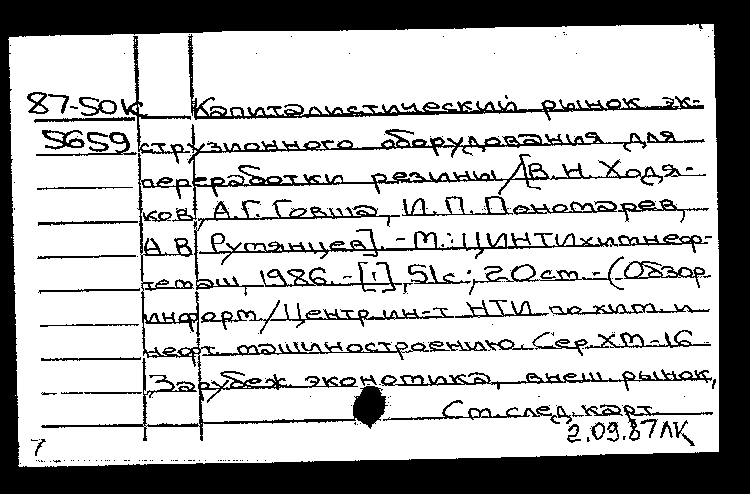 87-50К Капиталистический рынок эк-
5659 струзионного оборудования для
переработки резины /[В.Н. Ходя-
ков, А.Г. Говша, И.П. Пономарев,
А.В Румянцев]. - М.: ЦИНТИхимнеф-
темаш, 1986. - [1], 51с.; 20см. - (Обзор
информ./Центр.ин-т НТИ по хим. и
нефт. машиностроению. Сер. ХМ-16
Зарубеж экономика, внеш. рынок,
См. след. карт
2.09.87ЛК
7